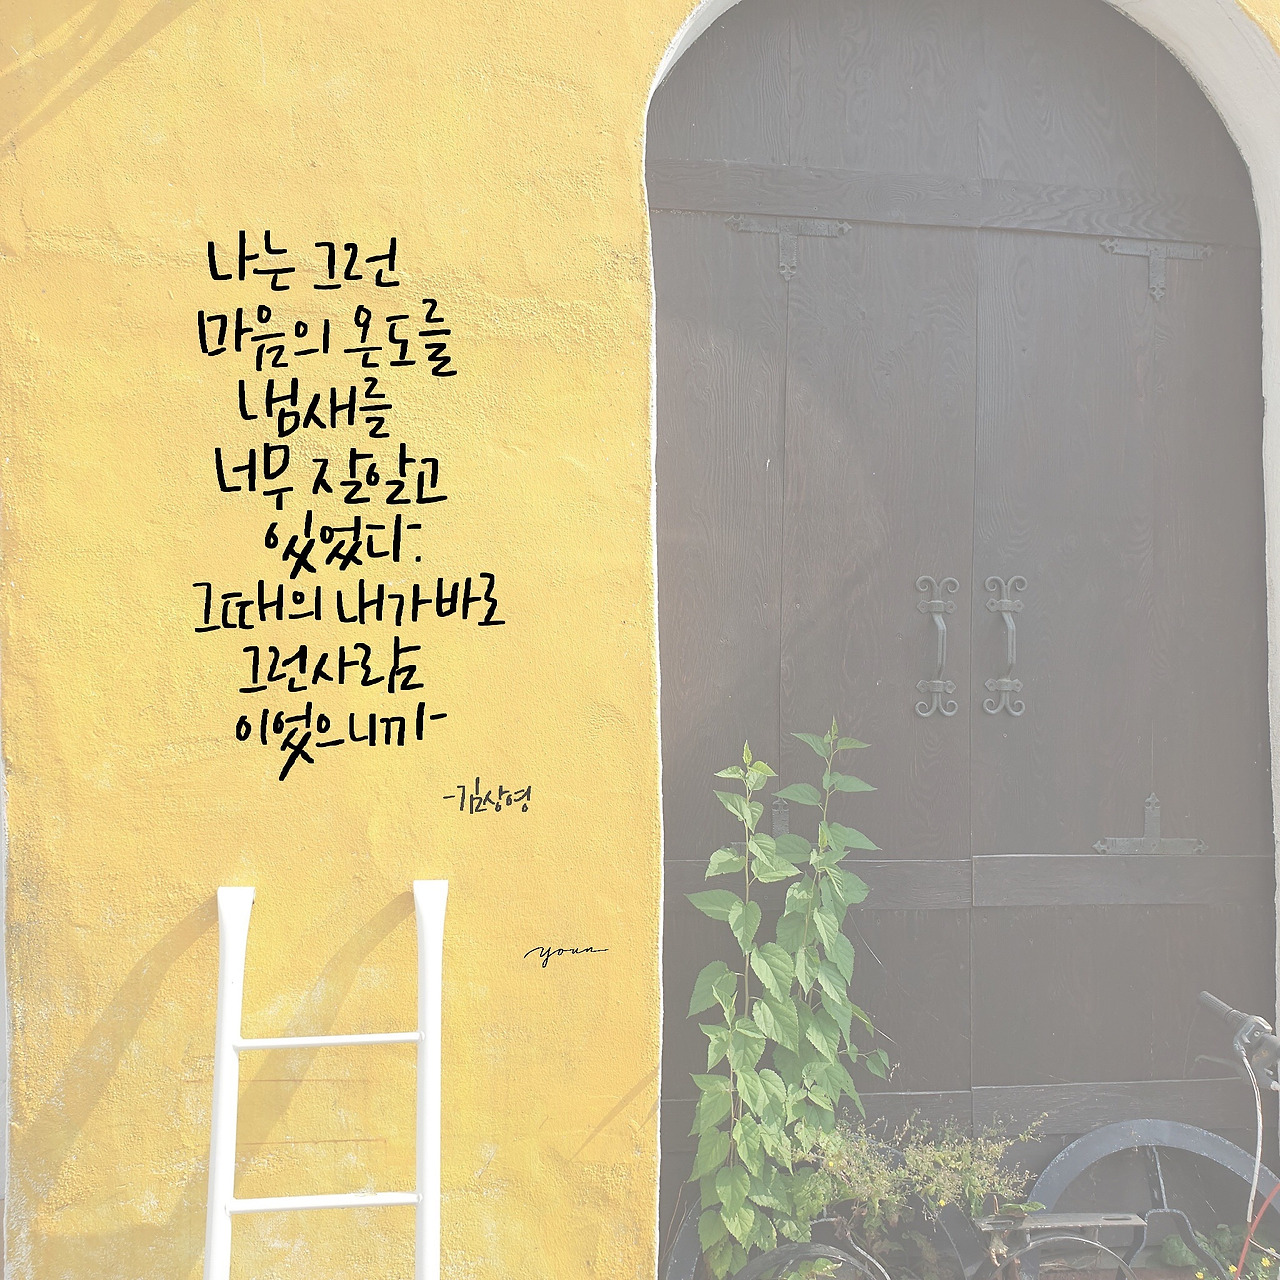 나는 그런
마음의 온도를
냄새를
너무 잘알고
있었다.
그때의 내가 바로
그런사람
이었으니까
-김상영
youn